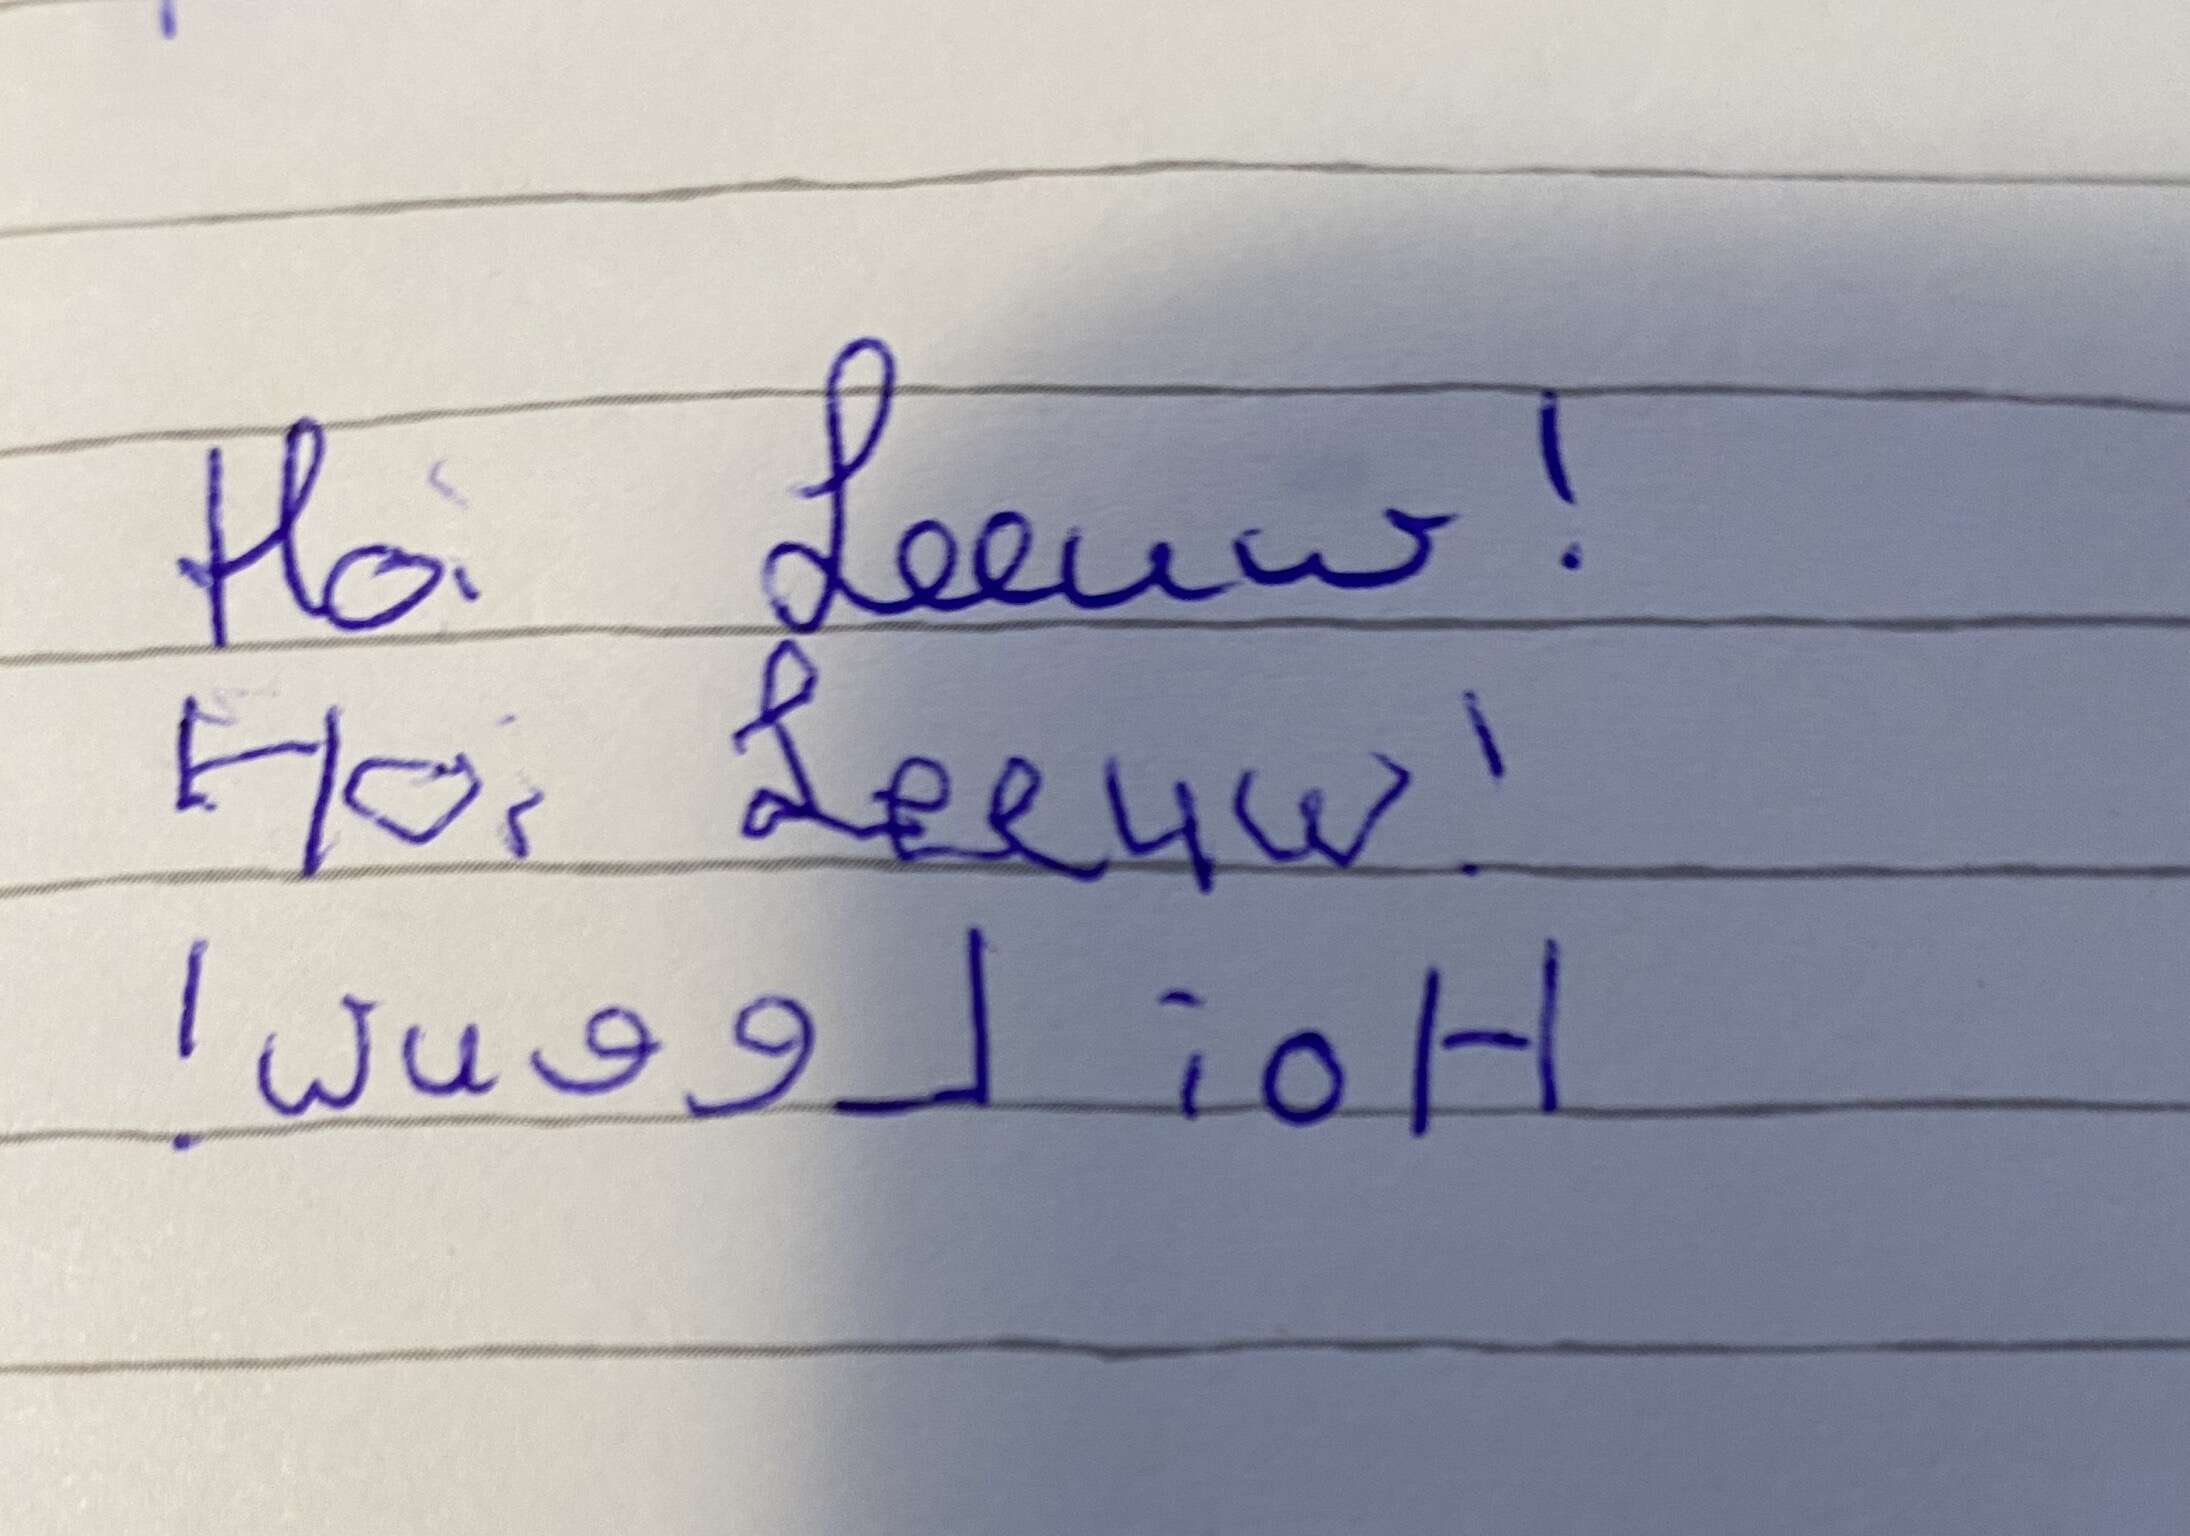 Hoi Leeuw!
Hoi Leeuw!
Hoi Leeuw!